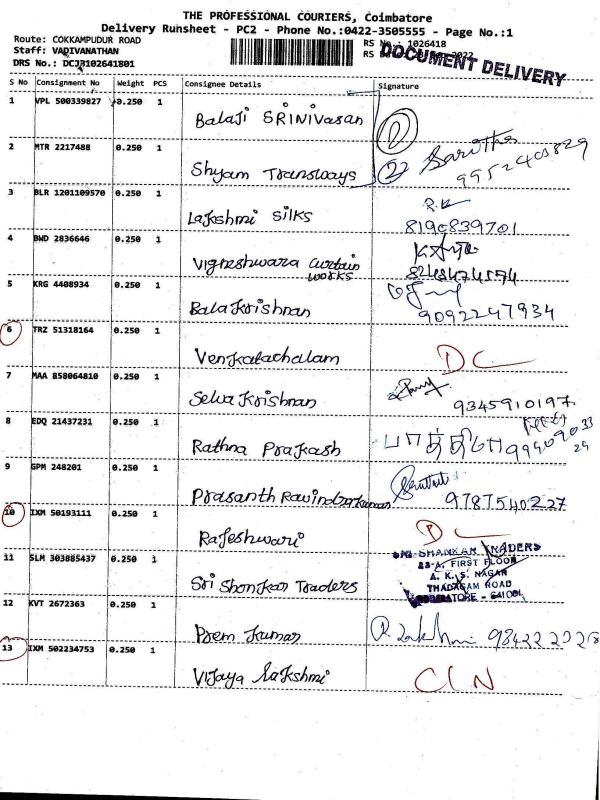 THE PROFESSIONAL COURIERS, Coimbatore
Delivery Runsheet - PC2 - Phone No.:0422-3505555 - Page No.:1
Route: COKKAMPUDUR ROAD
RS No.: 1026418
Staff: VADIVANATHAN
DOCUMENT DELIVERY
DRS No.: DC3B102641801
S No Consignment No Weight PCS Consignee Details Signature
1 VPL 500339827 0.250 1 Balaji SRINIVasan 1
2 MTR 2217488 0.250 1 Shyam Transways 2 Saritha
3 BLR 1201109570 0.250 1 Lakshmi Silks
4 BWD 2836646 0.250 1 Vigneshwara Curtain works
5 KRG 4408934 0.250 1 Bala Krishnan 9092247934
6 TRZ 51318164 0.250 1 Venkatachalam DC
7 MAA 858064810 0.250 1 Selva Krishnan 9345910197
8 EDQ 21437231 0.250 1 Rathna Prakash
9 GPM 248201 0.250 1 Prasanth Ravindrakumar 9787540227
10 IXM 50193111 0.250 1 Rajeshwari DC
11 SLM 303885437 0.250 1 Sri Shankar Traders
SRI SHANKAR TRADERS
23-A, FIRST FLOOR
A. K. S. NAGAR
THADAGAM ROAD
12 KVT 2672363 0.250 1 Prem Kumar
13 IXM 502234753 0.250 1 Vijaya Lakshmi CLN